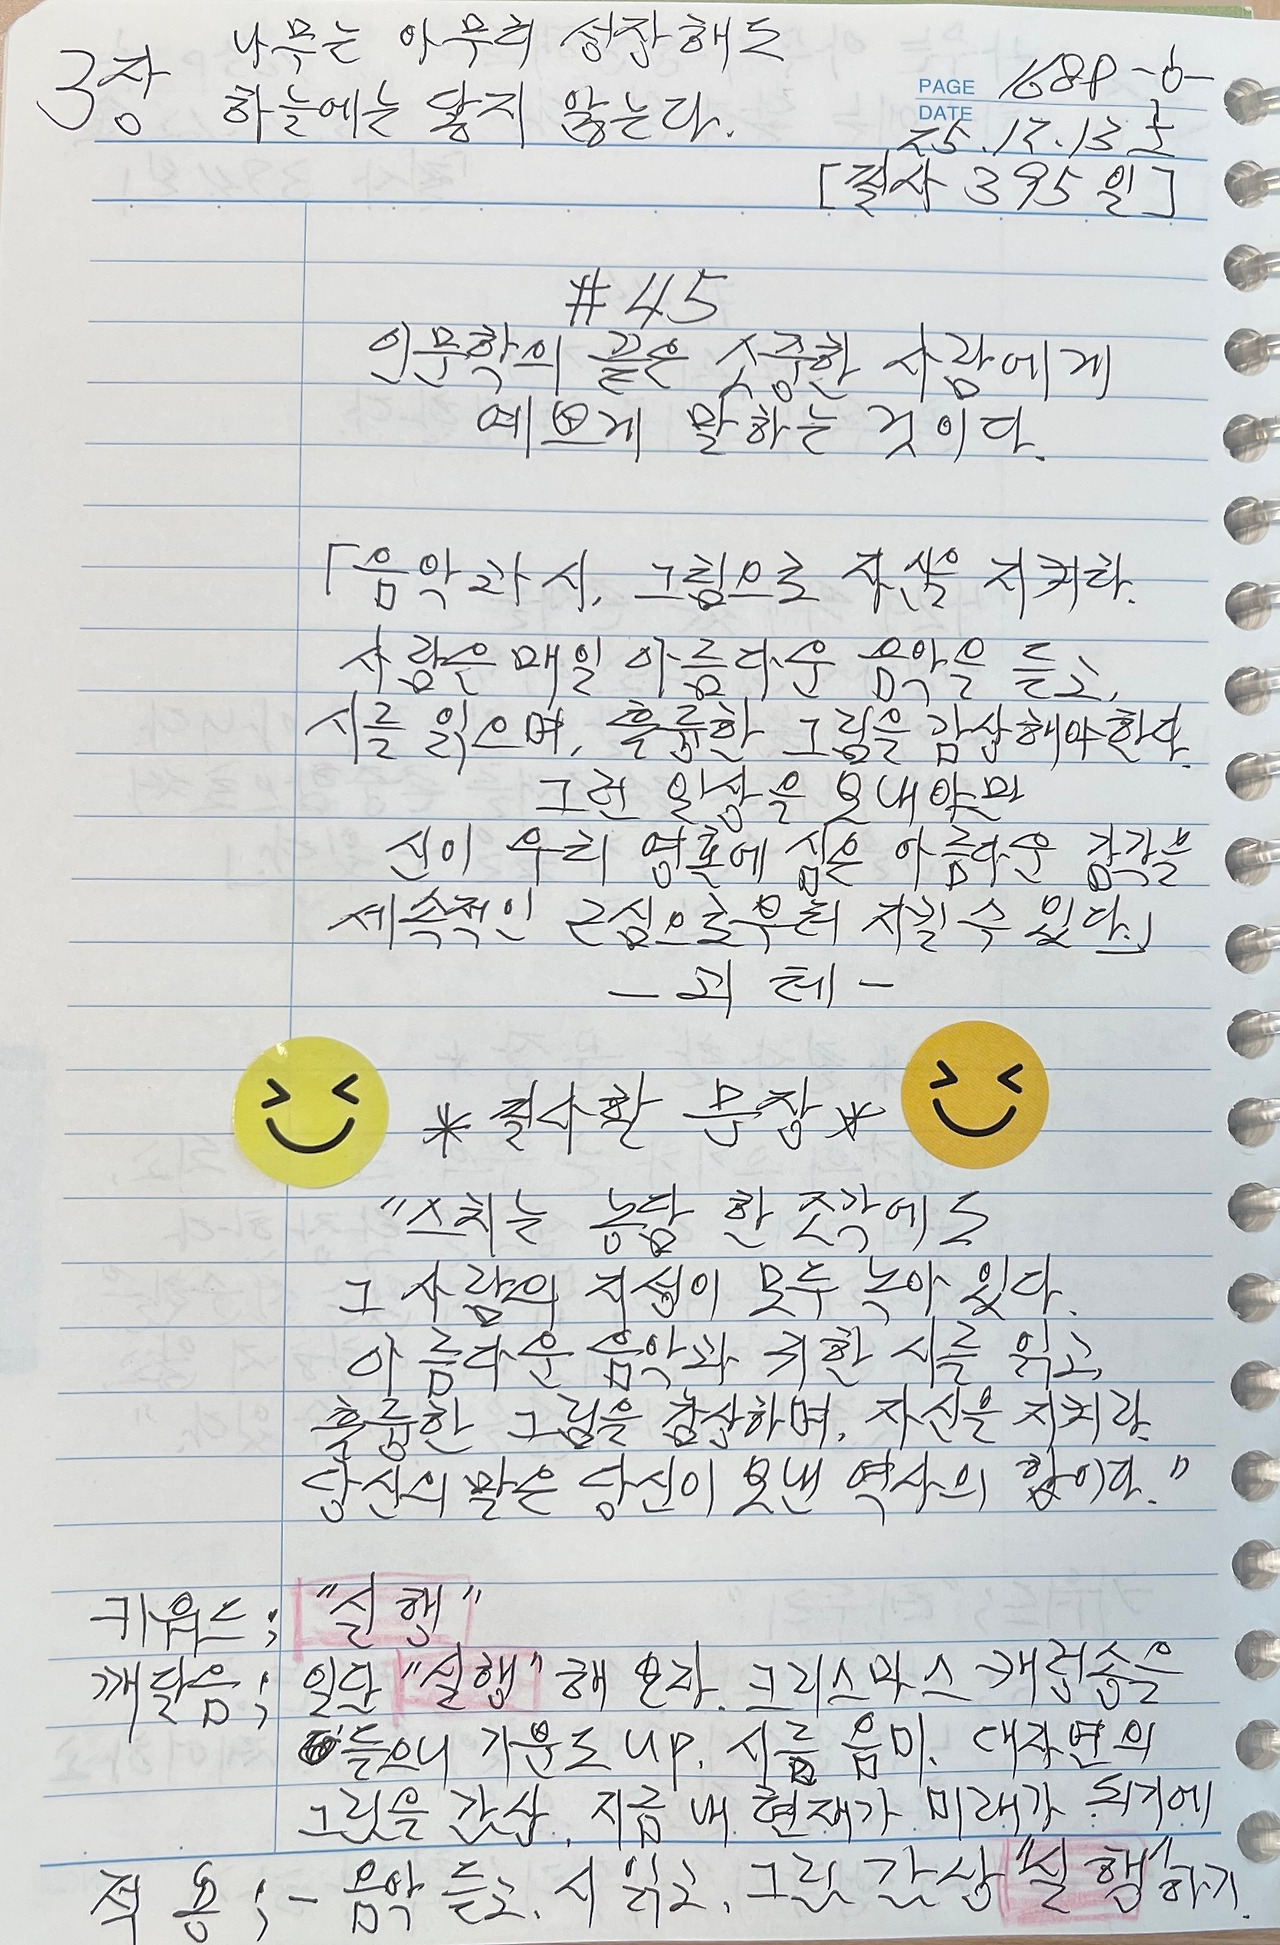 3장 나무는 아무리 성장해도
하늘에는 닿지 않는다.
PAGE 168P
DATE 25.12.13 토
[필사 395일]
#45
인문학의 끝은 소중한 사람에게
예쁘게 말하는 것이다.
「음악과 시, 그림으로 자신을 지켜라.
사람은 매일 아름다운 음악을 듣고,
시를 읽으며, 훌륭한 그림을 감상해야한다.
그런 일상을 보내야만
신이 우리 영혼에 심은 아름다운 감각을
세속적인 근심으로부터 지킬 수 있다.」
- 괴테 -
* 필사한 문장 *
"스치는 농담 한 조각에도
그 사람의 지성이 모두 녹아 있다.
아름다운 음악과 귀한 시를 읽고,
훌륭한 그림을 감상하며, 자신을 지켜라.
당신의 말은 당신이 보낸 역사의 합이다."
키워드; "실행"
깨달음; 일단 "실행"해 보자. 크리스마스 캐럽송을
들으니 기분도 up. 시를 음미. 대자연의
그림을 감상. 지금 내 현재가 미래가 되기에
적용; - 음악 듣고, 시 읽고, 그림 감상 "실행"하기.